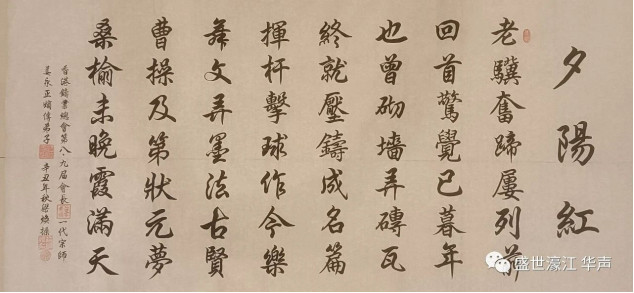 夕陽紅
老驥奮蹄屢列前
回首驚覺已暮年
也曾砌墻弄磚瓦
終就壓鑄成名篇
揮杆擊球作今樂
舞文弄墨法古賢
曹操及第狀元夢
桑榆未晚霞滿天
香港鑄業總會第八、九届會長 一代宗師
姜永正嫡傳弟子 辛丑年秋 操
盛世濠江 华声